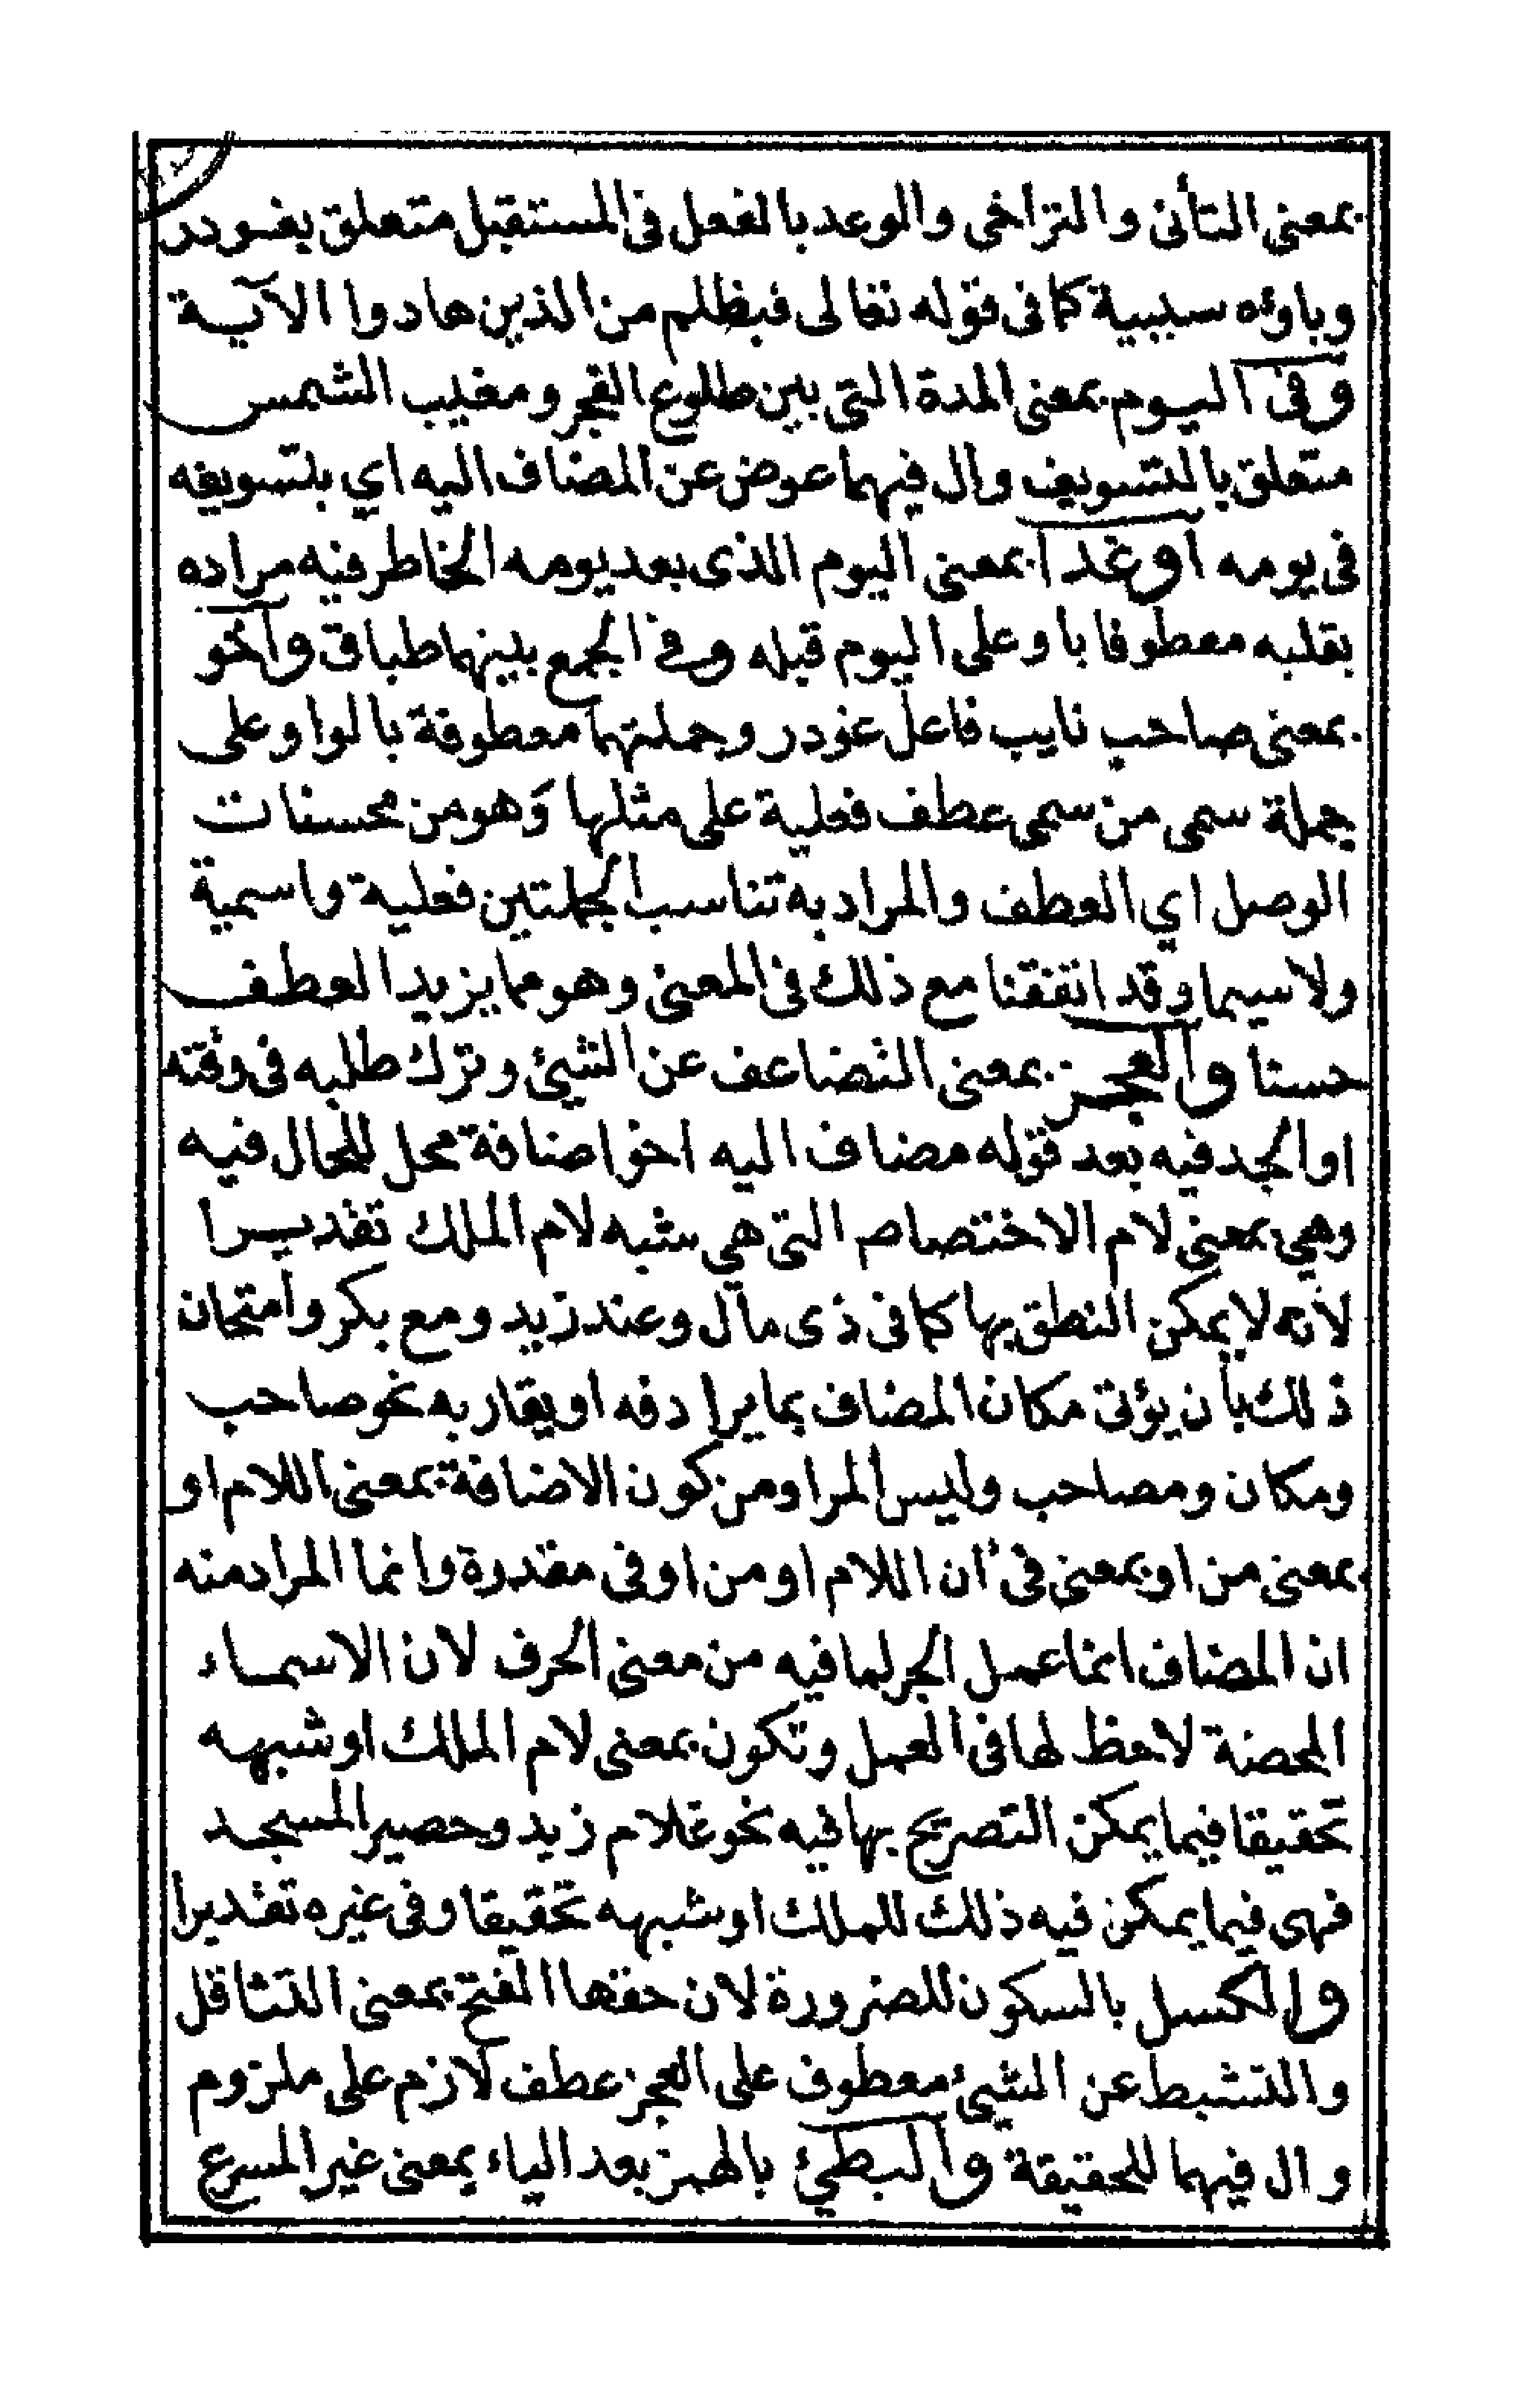 بمعنى التأنى والتراخى والوعد بالفعل فى المستقبل متعلق بغودر
وباؤه سببية كما فى قوله تعالى فبظلم من الذين هادوا الآية
وفى اليوم بمعنى المدة التى بين طلوع الفجر ومغيب الشمس
متعلق بالتسويف وال فيهما عوض عن المضاف اليه اي بتسويفه
فى يومه أو غدا بمعنى اليوم الذى بعد يومه الخاطر فيه مراده
بقلبه معطوفا باو على اليوم قبله وفى الجمع بينهما طباق وآخو
بمعنى صاحب نايب فاعل غودر وجملتهما معطوفة بالواو على
جملة سمى من سمى عطف فعلية على مثلها وهو من محسنات
الوصل اي العطف والمراد به تناسب الجملتين فعلية واسمية
ولا سيما وقد اتفقنا مع ذلك فى المعنى وهو مما يزيد العطف
حسنا والعجز بمعنى التضاعف عن الشيئ وترك طلبه فى وقته
او الجد فيه بعد قوله مضاف اليه اخو اضافة محل للحال فيه
وهي بمعنى لام الاختصاص التى هي شبه لام الملك تقديرا
لأنه لا يمكن النطق بها كما فى ذى مال وعند زيد ومع بكر وامتحان
ذلك بأن يؤتى مكان المضاف بما يرادفه او يقاربه نحو صاحب
ومكان ومصاحب وليس المراو من كون الاضافة بمعنى اللام او
بمعنى من او بمعنى فى أن اللام او من او فى مقدرة وانما المراد منه
ان المضاف انما عمل الجر لما فيه من معنى الحرف لأن الاسماء
المحضة لاحظ لها فى العمل وتكون بمعنى لام الملك او شبهه
تحقيقا فيما يمكن التصريح بها فيه نحو غلام زيد وحصير المسجد
فهى فيما يمكن فيه ذلك للملك او شبهه تحقيقا وفى غيره تقديرا
والكسل بالسكون للضرورة لان حقها الفتح بمعنى التثاقل
والتثبط عن الشيئ معطوف على العجز عطف لازم على ملزوم
وال فيهما للحقيقة والبطيئ بالهمز بعد الياء بمعنى غير المسرع